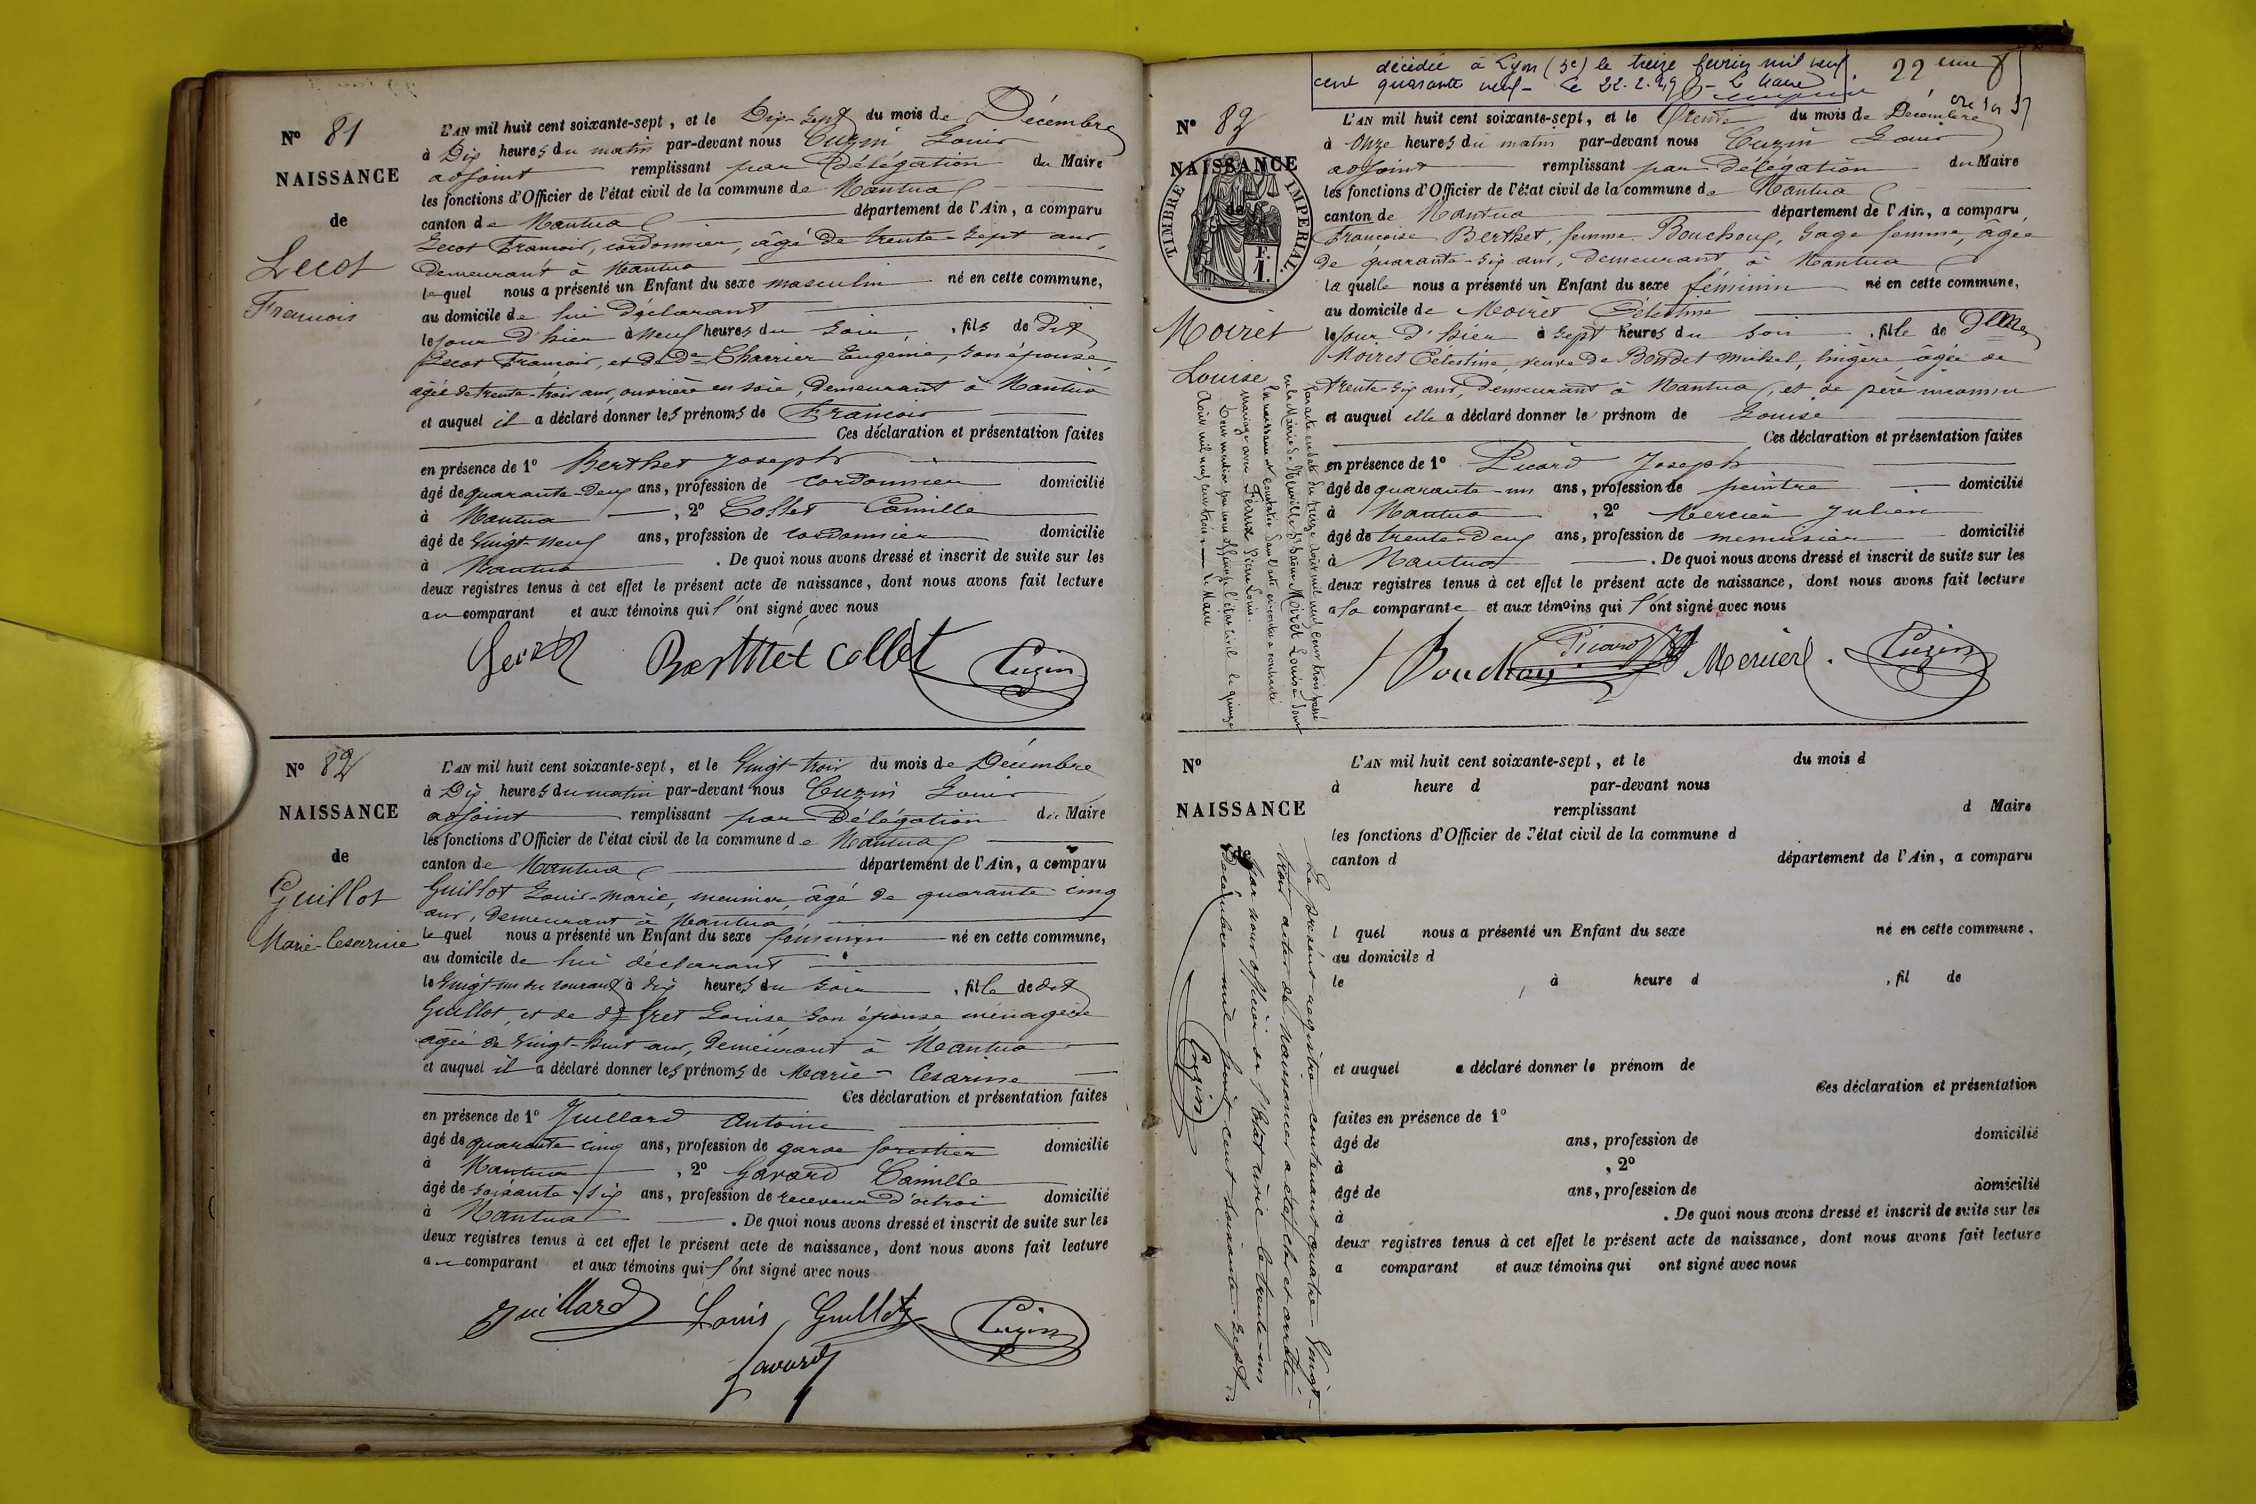 N° 81
NAISSANCE
de
Lecot
François
L'AN mil huit cent soixante-sept, et le Dix-Sept du mois de Décembre
à Dix heures du matin par-devant nous Cuzin Louis
adjoint remplissant par Délégation du Maire
les fonctions d'Officier de l'état civil de la commune de Nantua
canton de Nantua département de l'Ain, a comparu
Lecot François, cordonnier, âgé de trente-sept ans,
Demeurant à Nantua
lequel nous a présenté un Enfant du sexe masculin né en cette commune,
au domicile de lui Déclarant
le jour d'hier à neuf heures du soir, fils de dit
Lecot François, et de De Charrier Eugénie, son épouse,
âgée de trente-trois ans, ouvrière en soie, Demeurant à Nantua
et auquel il a déclaré donner les prénoms de François
Ces déclaration et présentation faites
en présence de 1° Berthet Joseph
âgé de quarante-deux ans, profession de cordonnier domicilié
à Nantua, 2° Collet Camille
âgé de Vingt-neuf ans, profession de cordonnier domicilié
à Nantua. De quoi nous avons dressé et inscrit de suite sur les
deux registres tenus à cet effet le présent acte de naissance, dont nous avons fait lecture
au comparant et aux témoins qui l'ont signé avec nous
Berthet Collet Cuzin
N° 82
NAISSANCE
de
Guillot
Marie-Césarine
L'AN mil huit cent soixante-sept, et le Vingt-trois du mois de Décembre
à Dix heures du matin par-devant nous Cuzin Louis
adjoint remplissant par Délégation du Maire
les fonctions d'Officier de l'état civil de la commune de Nantua
canton de Nantua département de l'Ain, a comparu
Guillot Louis-Marie, meunier, âgé de quarante cinq
ans, Demeurant à Nantua
lequel nous a présenté un Enfant du sexe féminin né en cette commune,
au domicile de lui déclarant
le Vingt-un du courant à dix heures du soir, fille de dit
Guillot, et de de Gret Louise son épouse, ménagère
âgée de Vingt-huit ans, Demeurant à Nantua
et auquel il a déclaré donner les prénoms de Marie-Césarine
Ces déclaration et présentation faites
en présence de 1° Juillard Antoine
âgé de quarante cinq ans, profession de garde forestier domicilié
à Nantua, 2° Gavard Camille
âgé de soixante-six ans, profession de receveur d'octroi domicilié
à Nantua. De quoi nous avons dressé et inscrit de suite sur les
deux registres tenus à cet effet le présent acte de naissance, dont nous avons fait lecture
au comparant et aux témoins qui l'ont signé avec nous
Juillard Louis Guillot Cuzin
Gavard
décédée à Lyon (5e) le treize février mil neuf
cent quarante neuf - Le 22.2.49 - Le Maire
22 eme
N° 83
NAISSANCE
de
TIMBRE IMPERIAL
1 F.
Moiret
Louise
L'AN mil huit cent soixante-sept, et le Trente du mois de Décembre
à Onze heures du matin par-devant nous Cuzin Louis
adjoint remplissant par Délégation du Maire
les fonctions d'Officier de l'état civil de la commune de Nantua
canton de Nantua département de l'Ain, a comparu
Françoise Berthet, femme Bouchoux, Sage femme, âgée
de quarante-six ans, demeurant à Nantua
laquelle nous a présenté un Enfant du sexe féminin né en cette commune,
au domicile de Moiret Célestine
le jour d'hier à sept heures du soir, fille de
Moiret Célestine, veuve de Bondet Michel, lingère, âgée de
trente-six ans, demeurant à Nantua, et de père inconnu
et auquel elle a déclaré donner le prénom de Louise
Ces déclaration et présentation faites
en présence de 1° Picard Joseph
âgé de quarante-un ans, profession de peintre domicilié
à Nantua, 2° Mercier Julien
âgé de trente-deux ans, profession de menuisier domicilié
à Nantua. De quoi nous avons dressé et inscrit de suite sur les
deux registres tenus à cet effet le présent acte de naissance, dont nous avons fait lecture
a la comparante et aux témoins qui l'ont signé avec nous
Bouchoux Picard Mercier Cuzin
Par acte en date du treize Août mil neuf cent trois passé
en la Mairie de Neuville Moiret Louise dont
la naissance est constatée dans l'acte ci-contre a contracté
mariage avec Pierre Louis.
Deux mentions par nous officier de l'état civil le quinze
Août mil neuf cent trois. Le Maire
N°
NAISSANCE
de
L'AN mil huit cent soixante-sept, et le du mois d
à heure d par-devant nous
remplissant d Maire
les fonctions d'Officier de l'état civil de la commune d
canton d département de l'Ain, a comparu
l quel nous a présenté un Enfant du sexe né en cette commune,
au domicile d
le à heure d, fil de
et auquel a déclaré donner le prénom de
Ces déclaration et présentation
faites en présence de 1°
âgé de ans, profession de domicilié
à, 2°
âgé de ans, profession de domicilié
à. De quoi nous avons dressé et inscrit de suite sur les
deux registres tenus à cet effet le présent acte de naissance, dont nous avons fait lecture
a comparant et aux témoins qui ont signé avec nous
Le présent registre contenant quatre-Vingt-
trois actes de naissances a été clos et arrêté
par nous officier de l'Etat civil le trente-un
Décembre mil huit cent soixante-sept
Cuzin